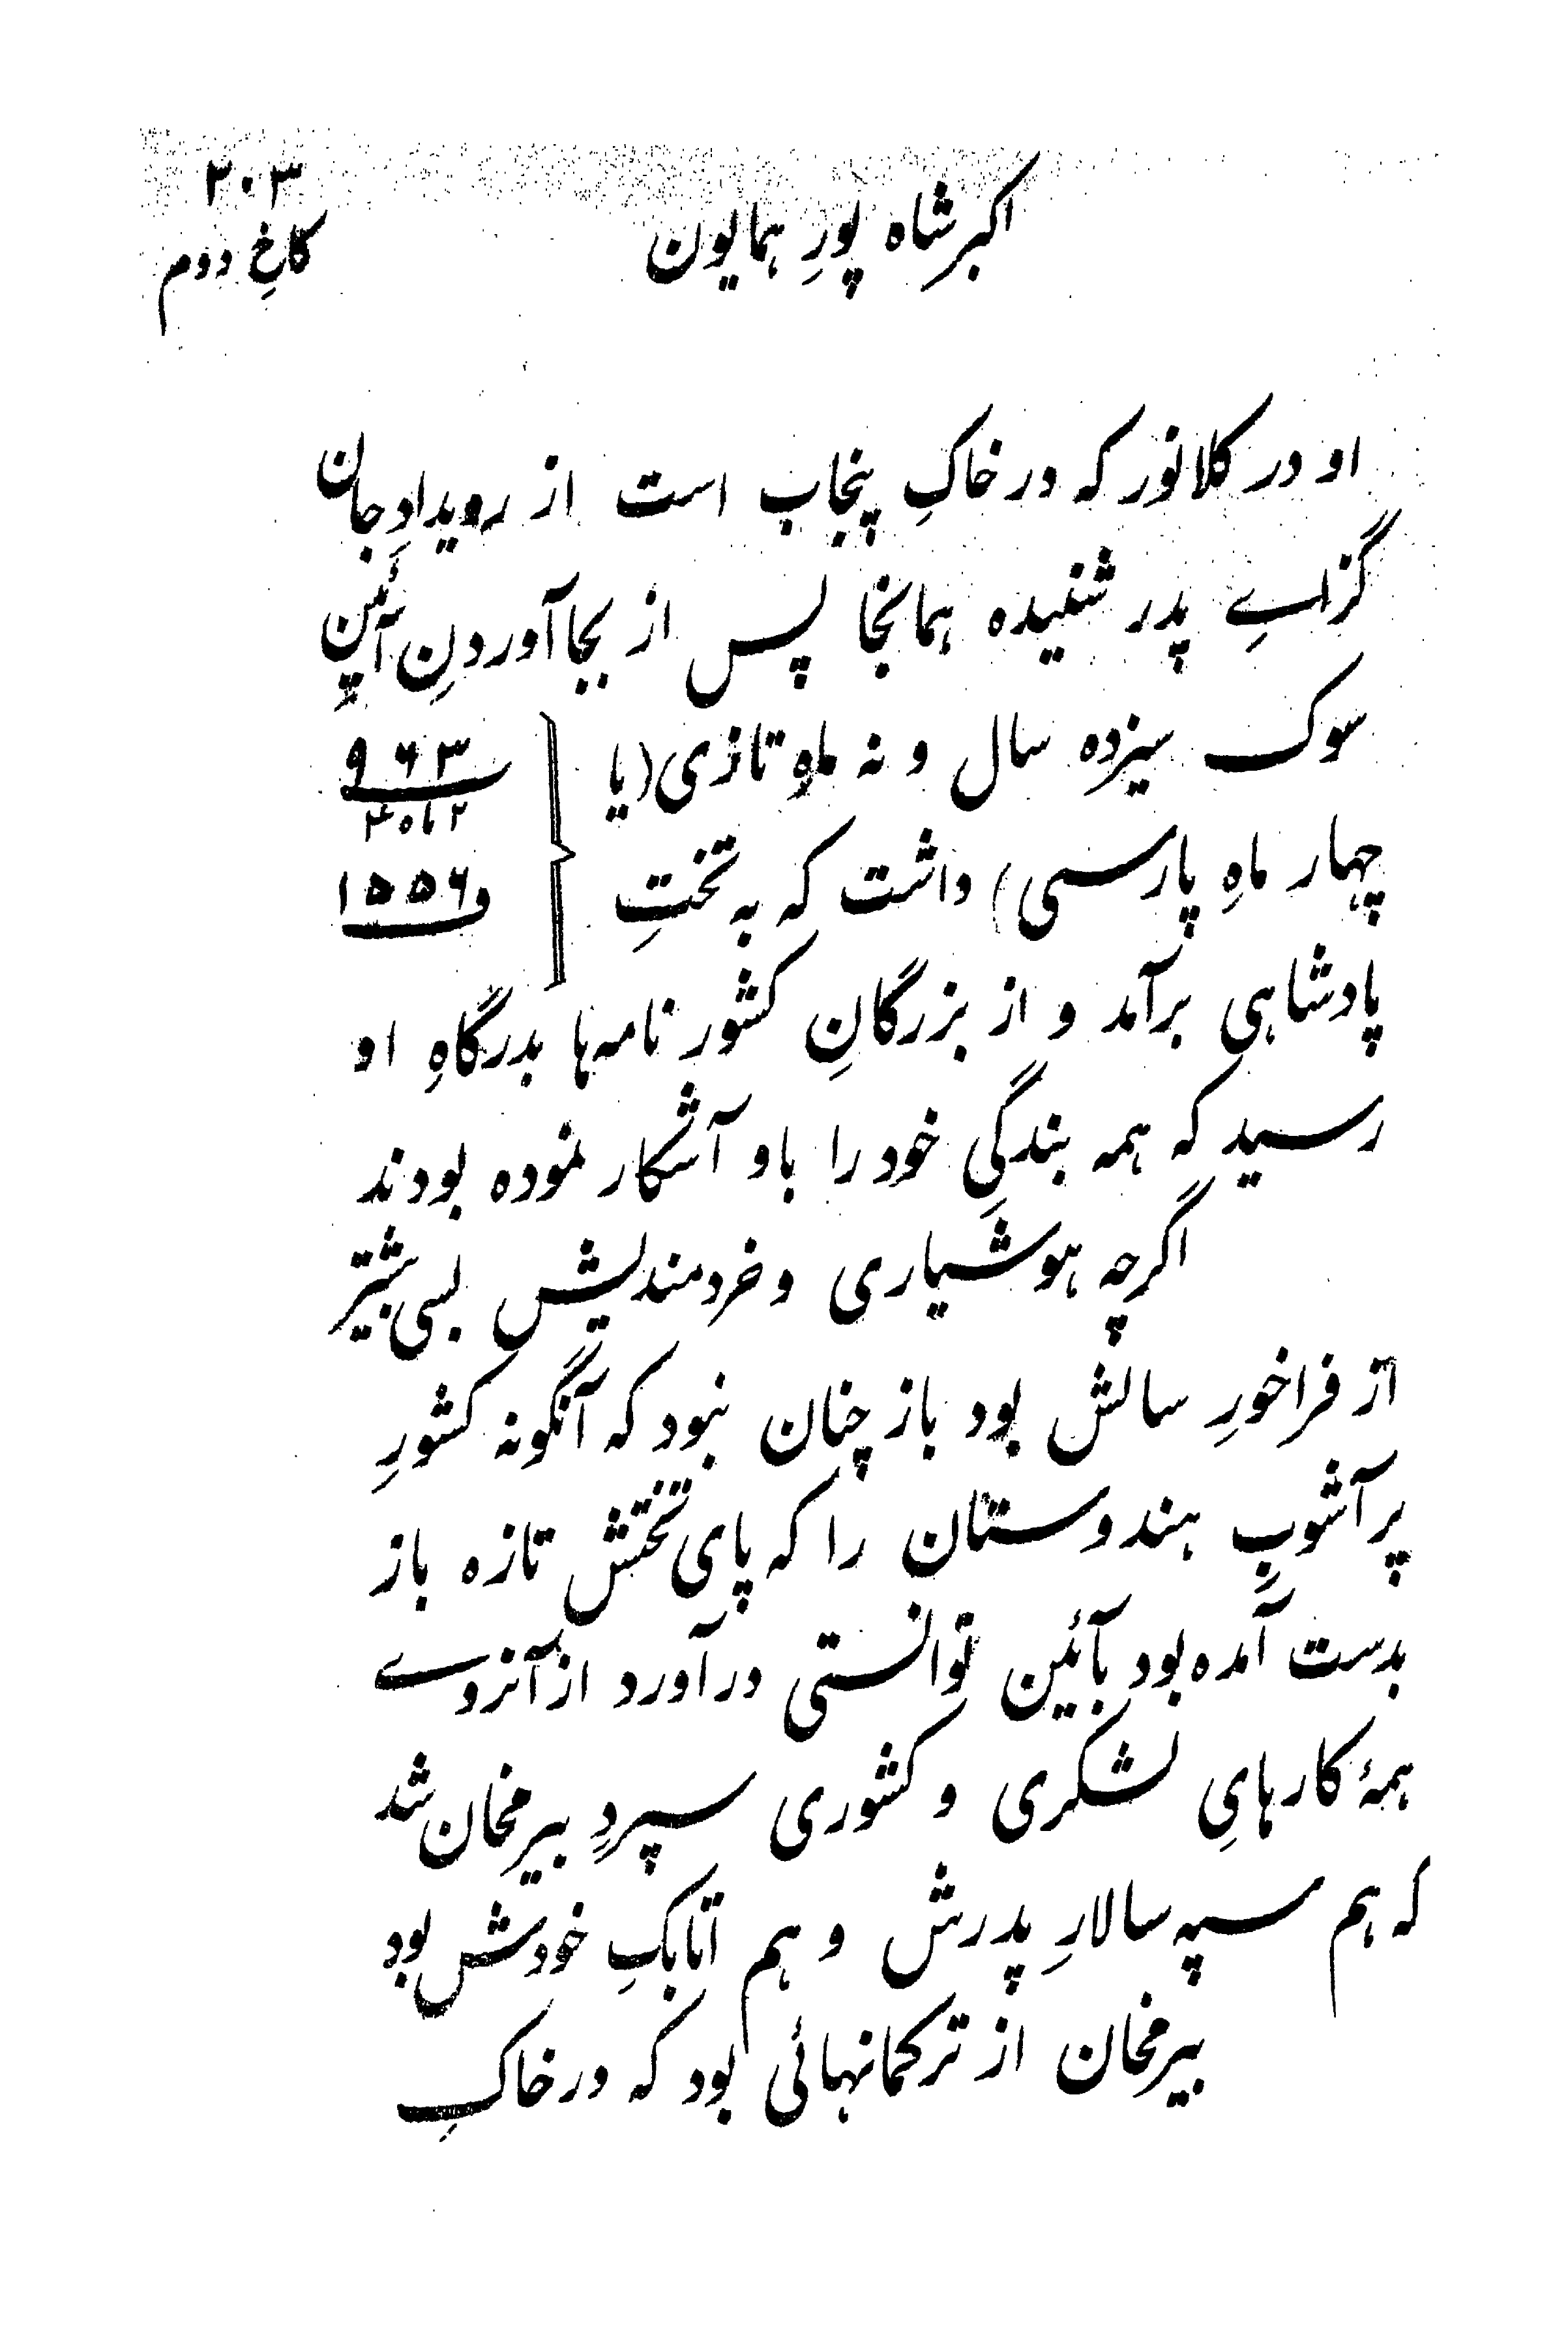 ۲۰۳
اکبرشاہ پورِ ہمایون
کاخِ دوم
او در کلانور کہ در خاکِ پنجاب است از رویدادِ جان
گزاے پدر شنیدہ ہمانجا پس از بجا آوردنِ آئینِ
سوک سیزدہ سال و نہ ماہِ تازی (یا
۹۶۳
۲ ماہ ۴
چہار ماہِ پارسی) داشت کہ بہ تختِ
۱۵۵۶
پادشاہی برآمد و از بزرگانِ کشور نامہ ہا بدرگاہِ او
رسید کہ ہمہ بندگیِ خود را باو آشکار نمودہ بودند
اگرچہ ہوشیاری و خردمندیش بسی بیشتر
از فراخورِ سالش بود باز چنان نبود کہ آنگونہ کشورِ
پر آشوبِ ہندوستان را کہ پای تختش تازہ باز
بدست آمدہ بود بآئین توانستی درآورد از آنروے
ہمۂ کارہایِ لشکری و کشوری سپردِ بیرمخان شد
کہ ہم سپہ سالارِ پدرش و ہم اتابکِ خودش بود
بیرمخان از ترکمانہائی بود کہ در خاکِ